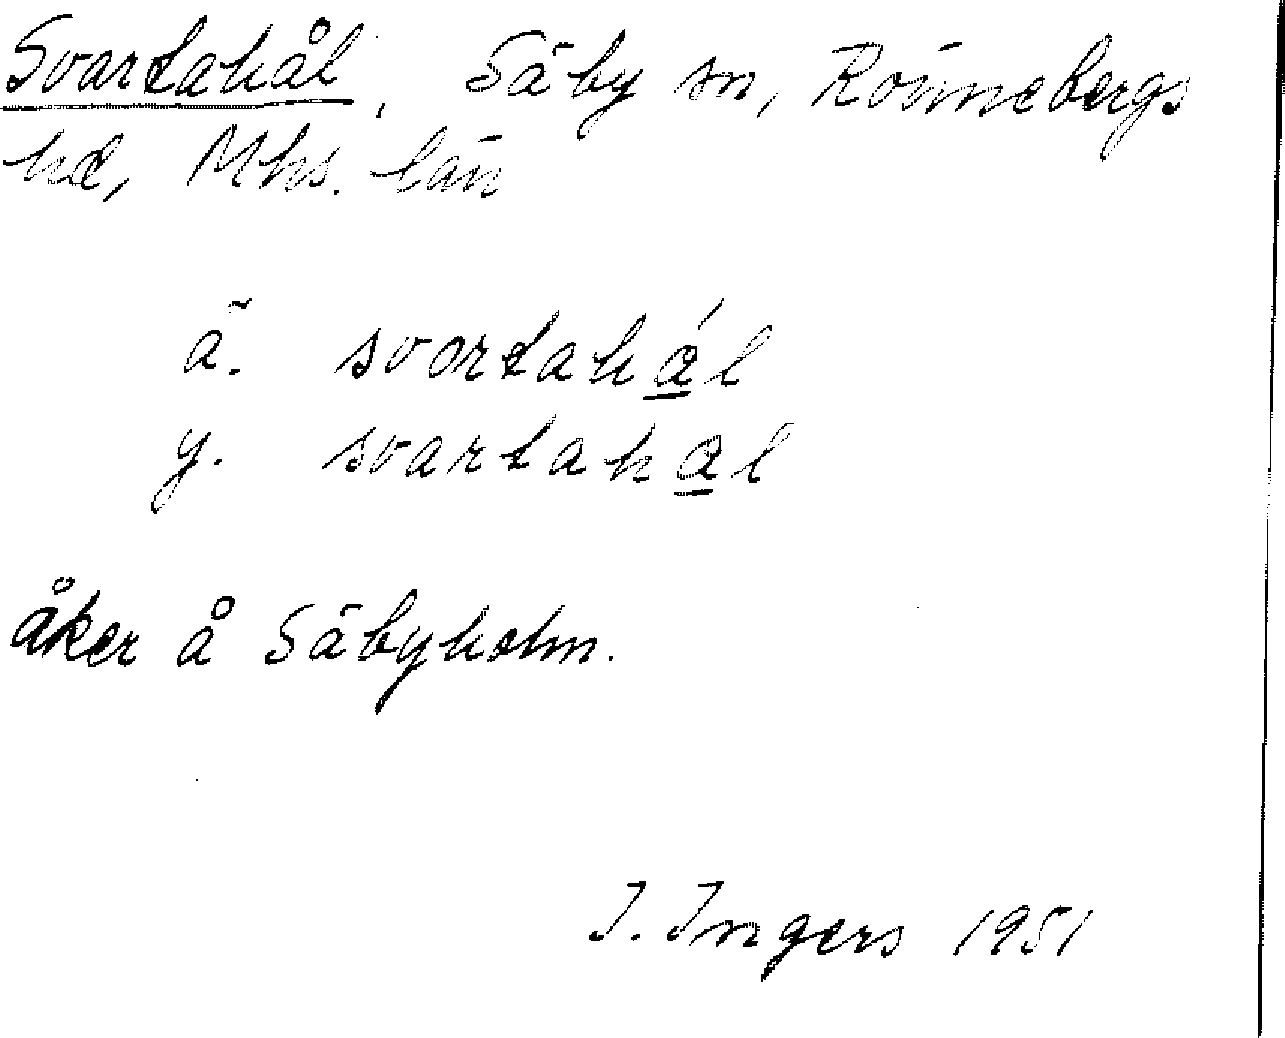 Svartahål, Säby sn, Rönnebergs
hd, Mhs. län
ä. svortahál
y. svartahal
åker å Säbyholm.
I. Ingers 1951